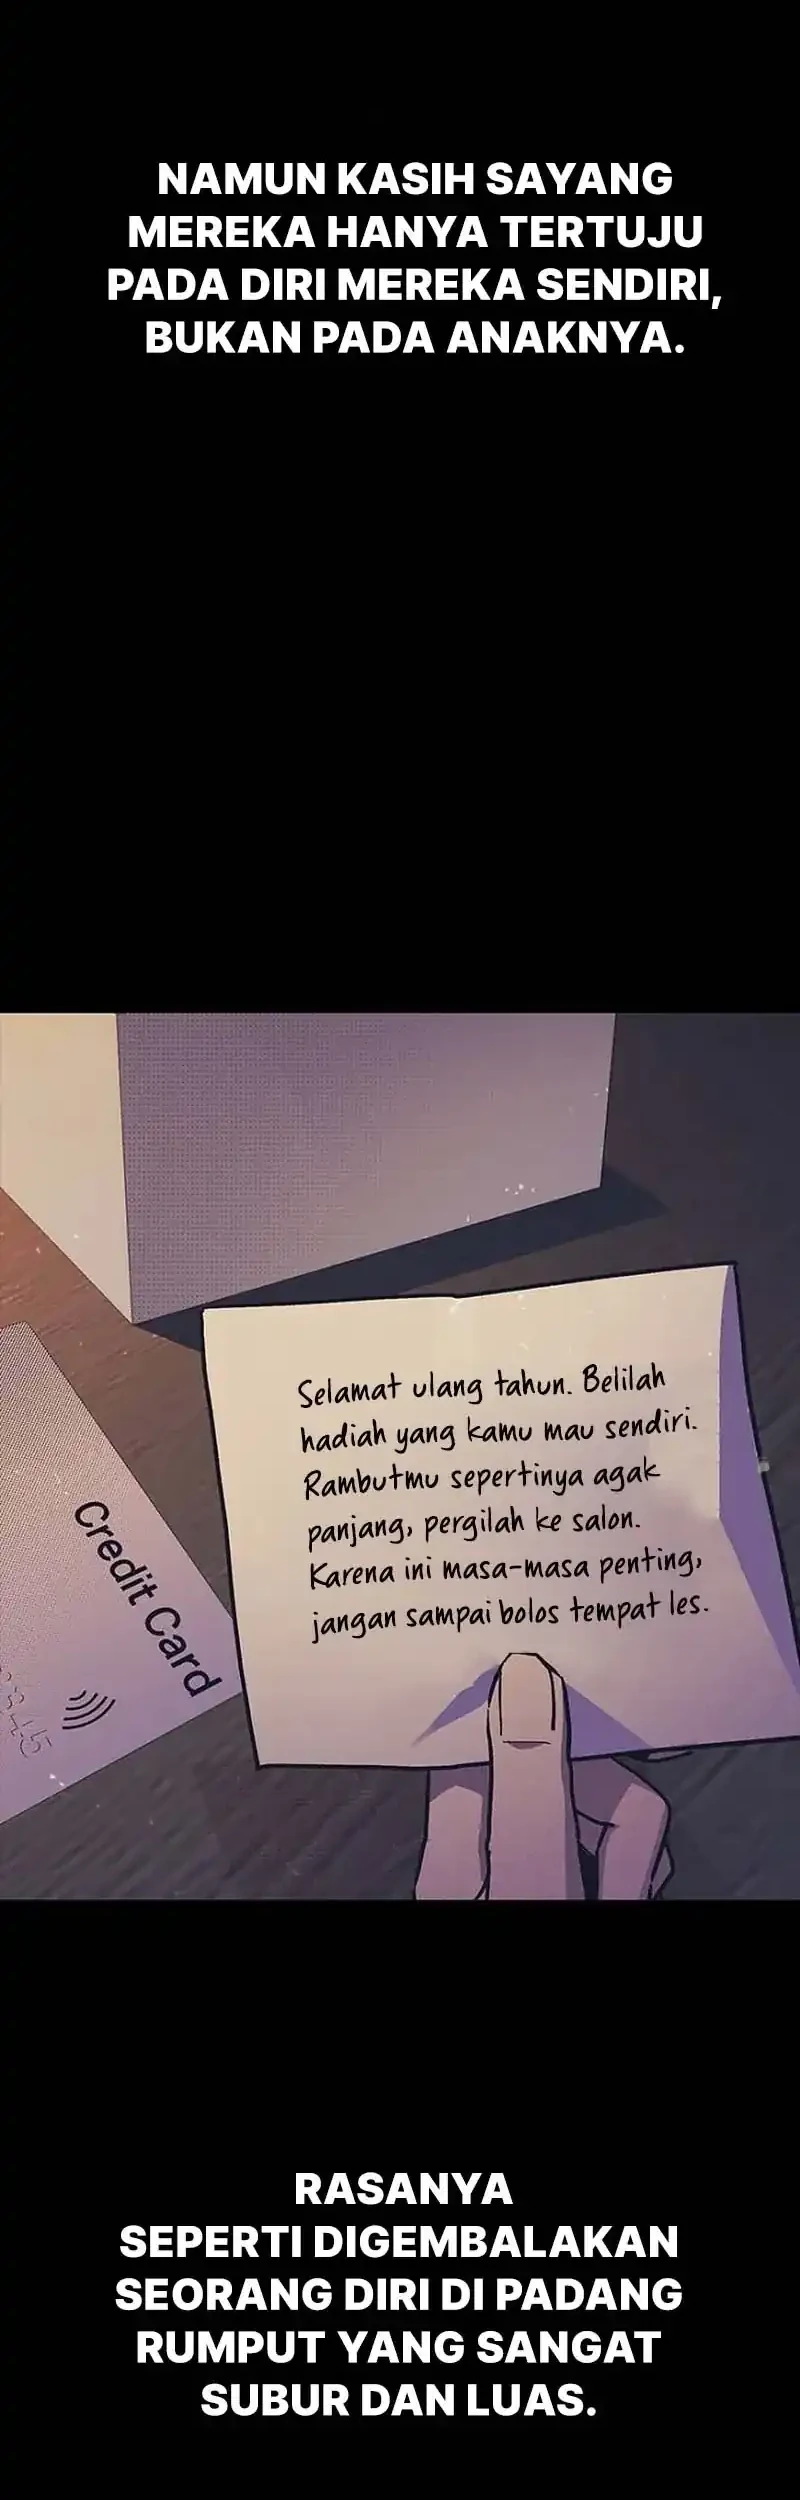 NAMUN KASIH SAYANG
MEREKA HANYA TERTUJU
PADA DIRI MEREKA SENDIRI,
BUKAN PADA ANAKNYA.
Selamat ulang tahun. Belilah
hadiah yang kamu mau sendiri.
Rambutmu sepertinya agak
panjang, pergilah ke salon.
Karena ini masa-masa penting,
jangan sampai bolos tempat les.
Credit Card
RASANYA
SEPERTI DIGEMBALAKAN
SEORANG DIRI DI PADANG
RUMPUT YANG SANGAT
SUBUR DAN LUAS.